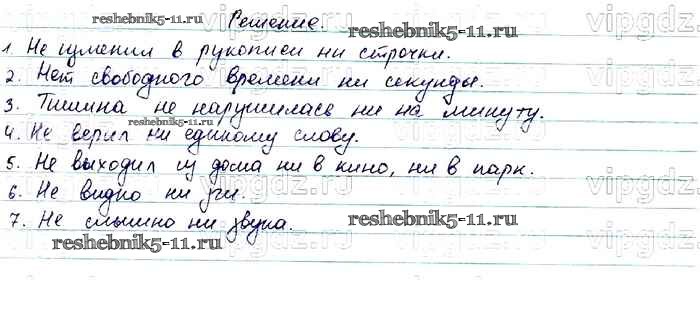 Решение.
reshebnik5-11.ru reshebnik5-11.ru vipgdz.ru
1. Не изменил в рукописи ни строчки.
2. Нет свободного времени ни секунды.
3. Тишина не нарушилась ни на минуту.
reshebnik5-11.ru
4. Не верил ни единому слову.
5. Не выходил из дома ни в кино, ни в парк.
vipgdz.ru
6. Не видно ни зги.
7. Не слышно ни звука.
reshebnik5-11.ru
reshebnik5-11.ru vipgdz.ru